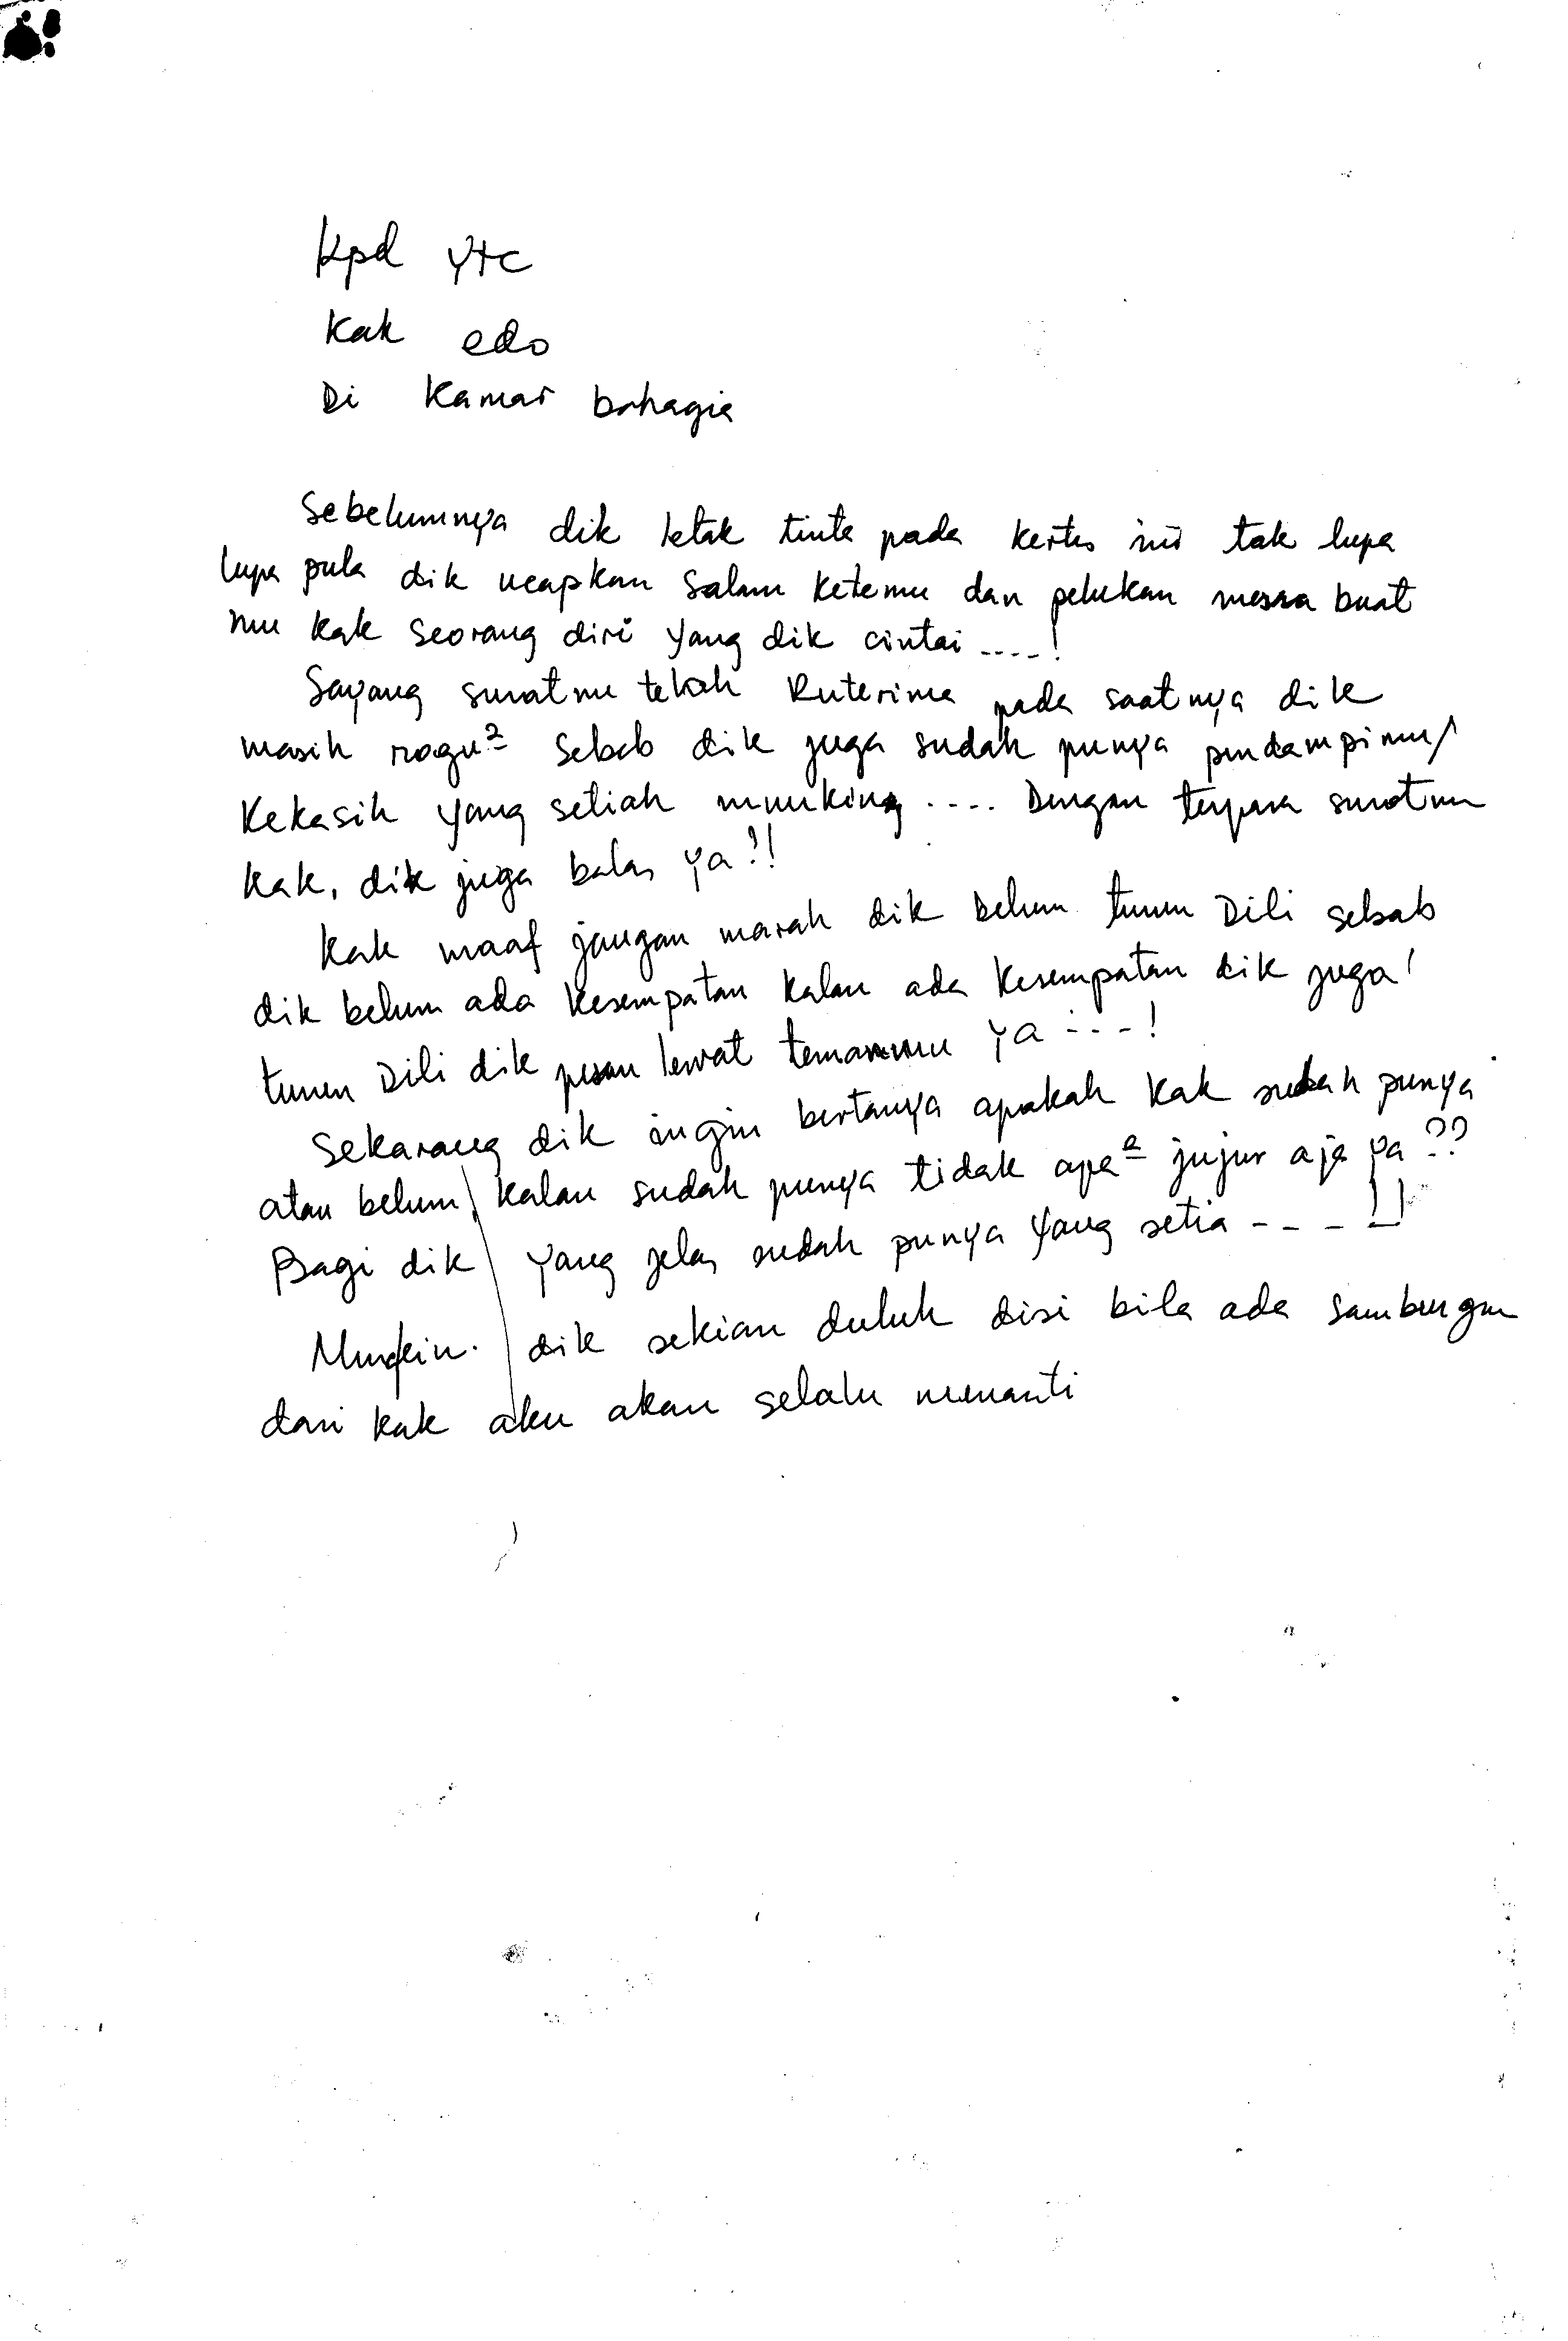 Kpd ytc
Kak edo
Di Kamar bahagia
Sebelumnya dik letak tinta pada kertas ini tak lupa
lupa pula dik ucapkan salam ketemu dan pelukan mesra buat
mu kak seorang diri yang dik cintai ....!
Sayang suratmu telah kuterima pada saatnya dik
masih ragu² sebab dik juga sudah punya pendampimu/
kekasih yang setiah munking .... Dengan suratmu
kak, dik juga balas ya?!
Kak maaf jangan marah dik belum turun Dili sebab
dik belum ada kesempatan kalau ada kesempatan dik juga
turun Dili dik pesan lewat temanmu ya ...-!
Sekarang dik ingin bertanya apakah kak sudah punya
atau belum, kalau sudah punya tidak apa² jujur aja ya??
Bagi dik yang jelas sudah punya yang setia ----!!
Mungkin. dik sekian duluh disi bila ada sambungan
dari kak aku akan selalu menanti